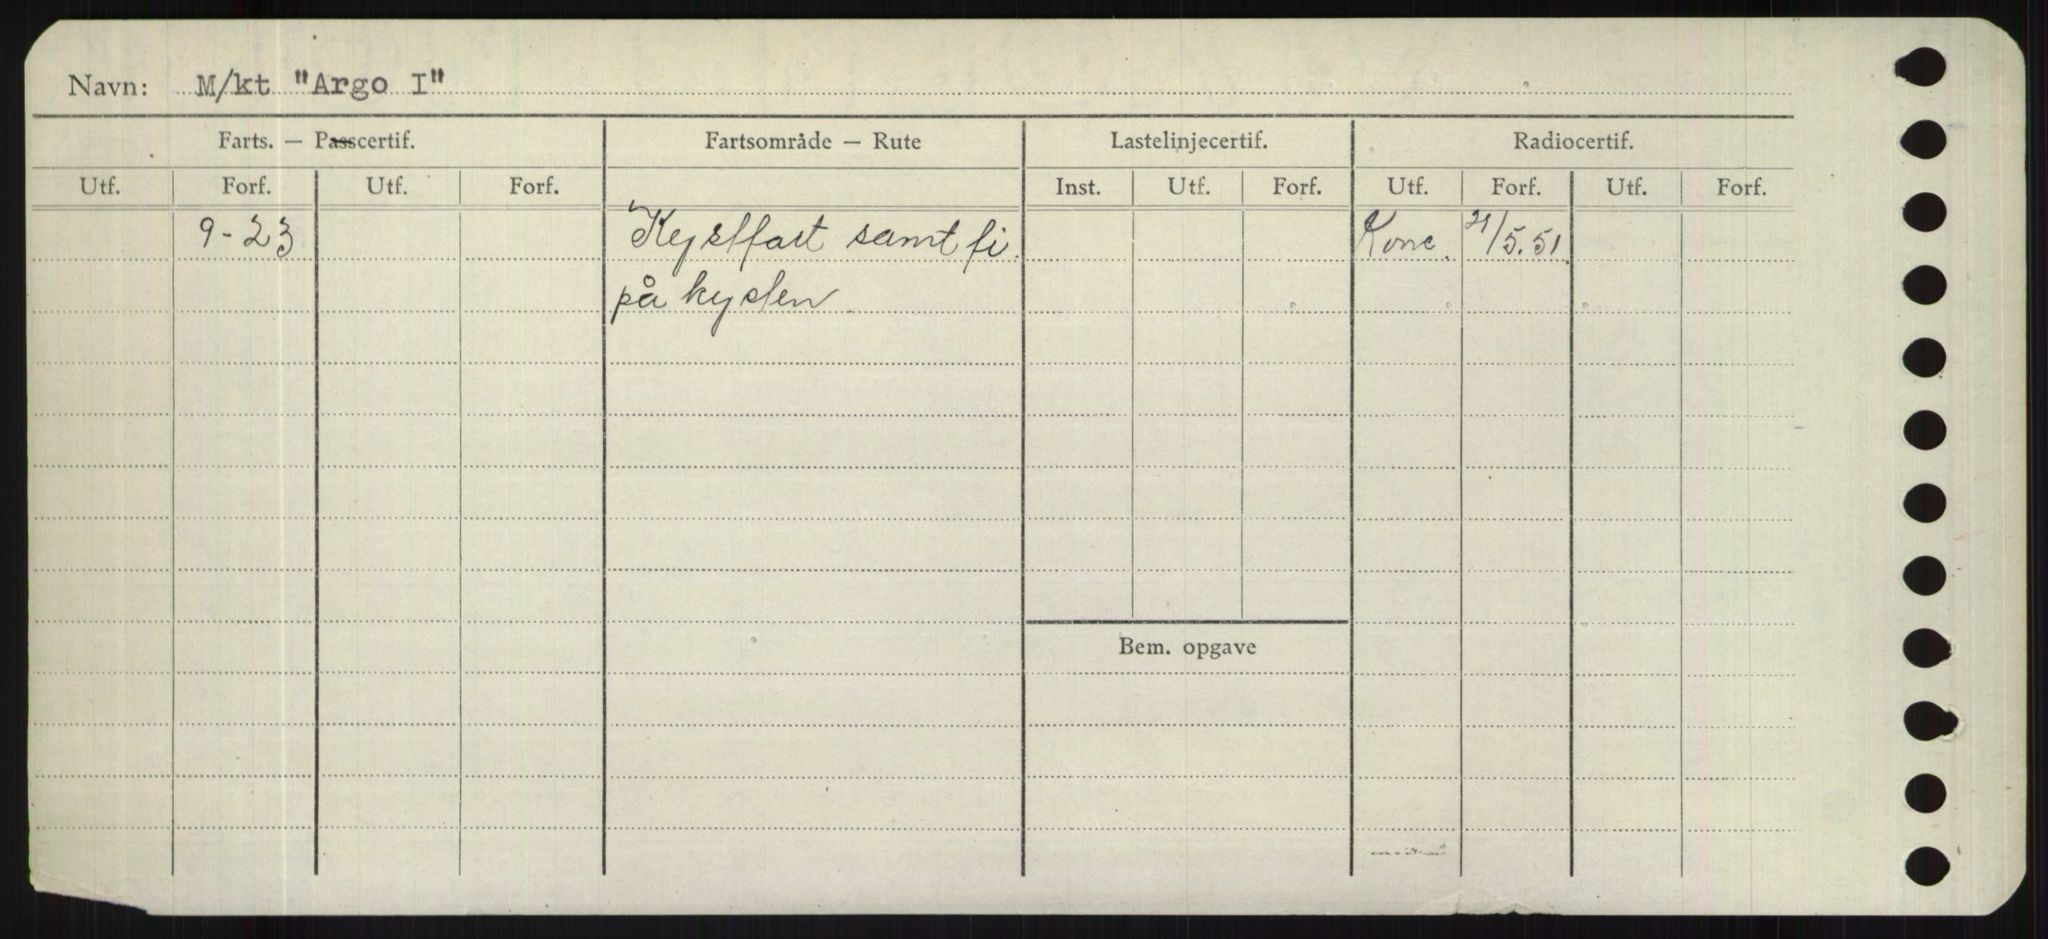 Navn: M/kt "Argo I"
Farts. — Passcertif. Fartsområde — Rute Lastelinjecertif. Radiocertif.
Utf. Forf. Utf. Forf. Inst. Utf. Forf. Utf. Forf. Utf. Forf.
9-23 Kystfart samt fi. Konc. 21/5.51.
på kysten
Bem. opgave